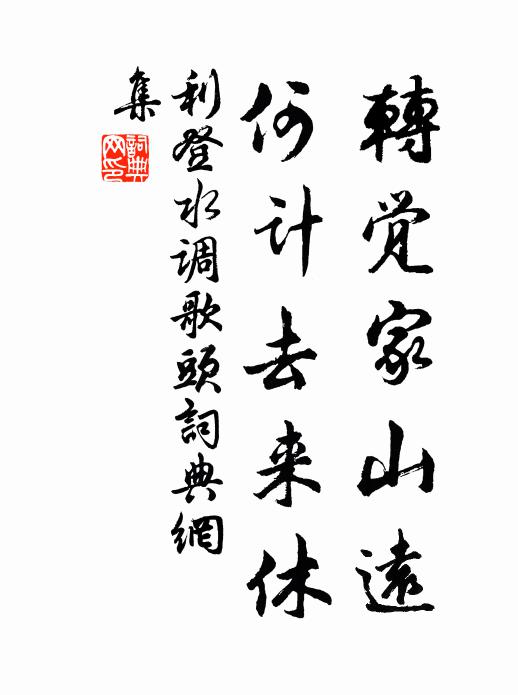 轉觉家山遠
何计去来休
利登水调歌頭詞典網
集
詞典
网印